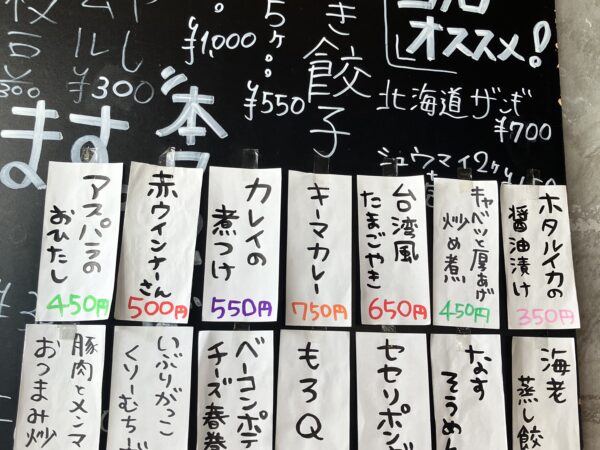 ¥300
¥1,000
¥550
き餃子
オススメ!
北海道ザンギ
¥700
シュウマイ2ケ
ます
アスパラの
おひたし
450円
赤ウインナーさん
500円
カレイの
煮つけ
550円
キーマカレー
750円
台湾風
たまごやき
650円
キャベツと厚あげ
炒め煮
450円
ホタルイカの
醤油漬け
350円
豚肉とメンマ
おつまみ炒
いぶりがっこ
くりーむちーず
ベーコンポテ
チーズ春巻
もろQ
セセリポン
なす
そうめん
海老
蒸し餃